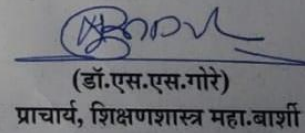 (डॉ.एस.एस.गोरे)
प्राचार्य, शिक्षणशास्त्र महा.बार्शी